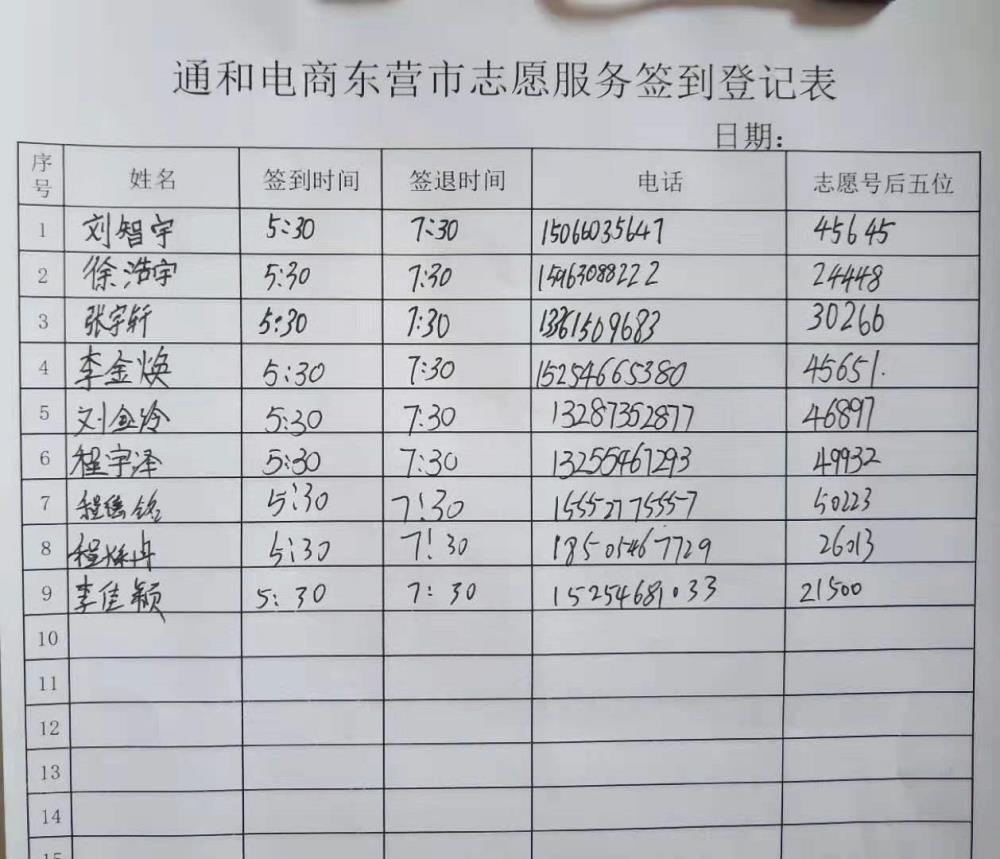 通和电商东营市志愿服务签到登记表
日期：
序号 姓名 签到时间 签退时间 电话 志愿号后五位
1 刘智宇 5:30 7:30 15066035647 45645
2 徐浩宇 5:30 7:30 15963088222 24448
3 张宇轩 5:30 7:30 13361509683 30266
4 李金焕 5:30 7:30 15254665380 45651.
5 刘金玲 5:30 7:30 13287352877 46897
6 程宇泽 5:30 7:30 13255467293 49932
7 5:30 7:30 15552775557 50223
8 5:30 7:30 18505467729 26013
9 李佳颖 5:30 7:30 15254681033 21500
10
11
12
13
14
15